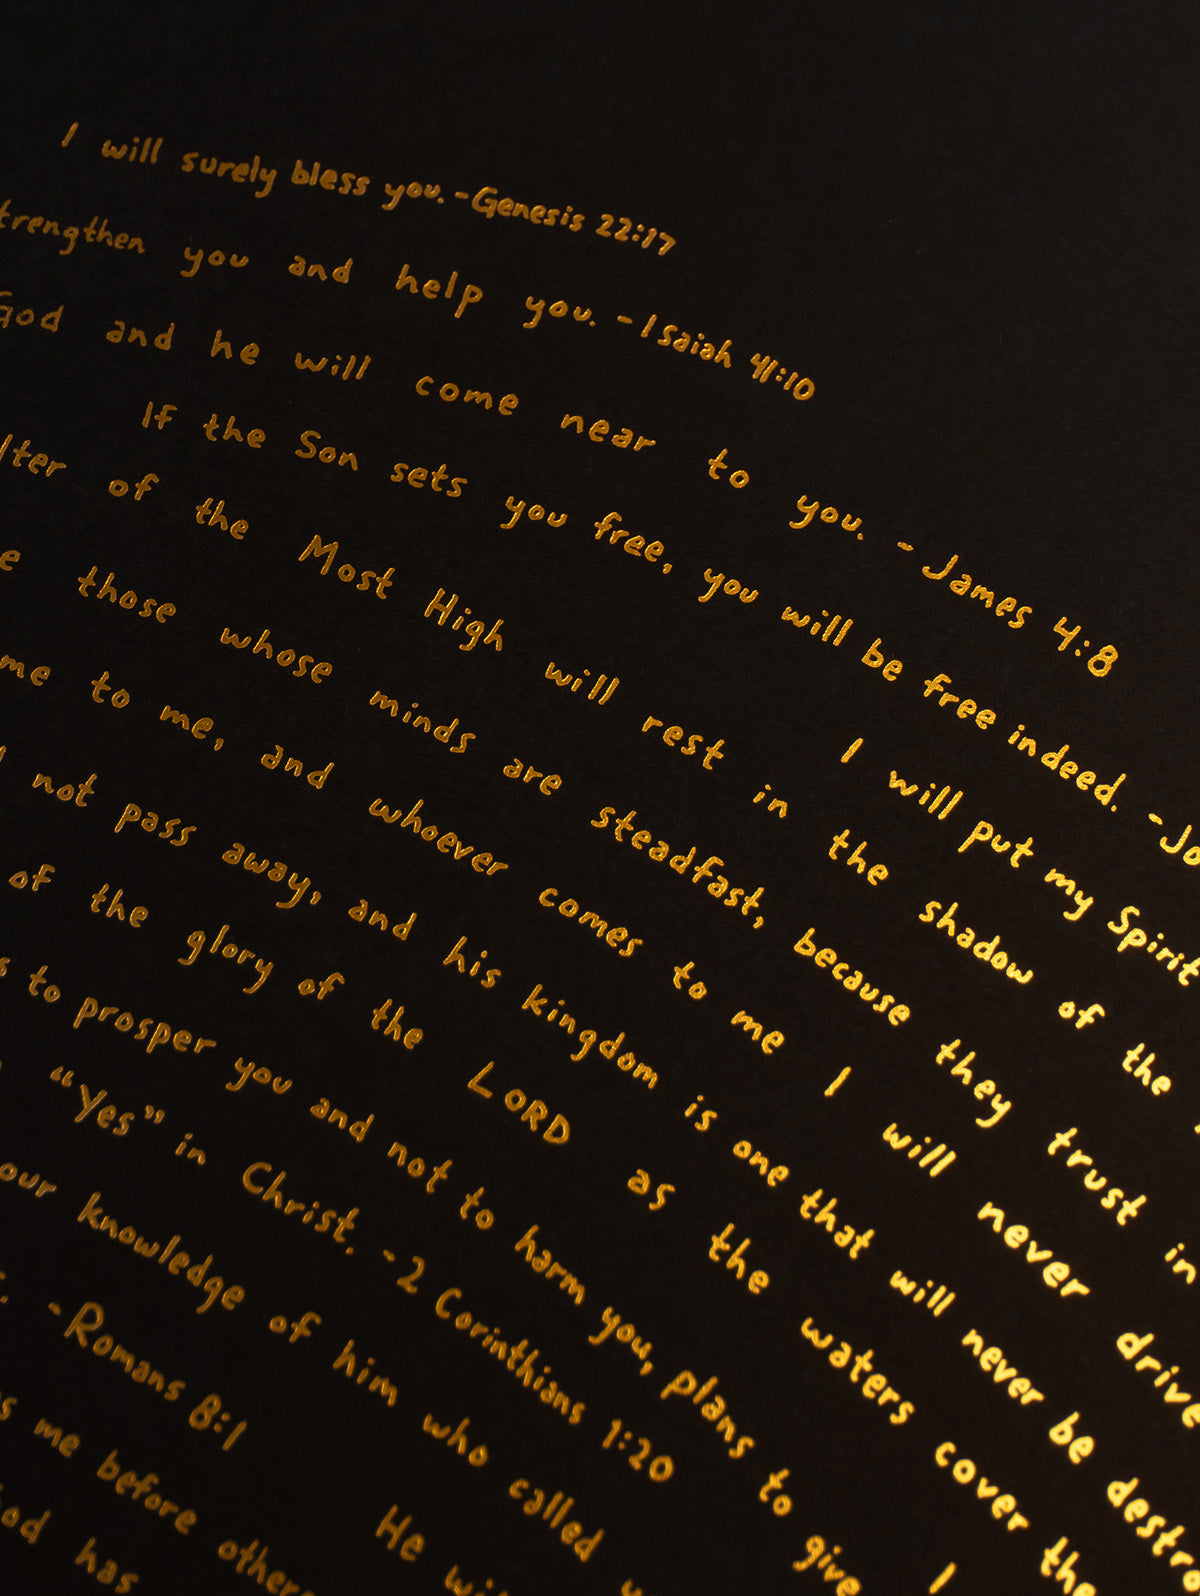 I will surely bless you. -Genesis 22:17
trengthen you and help you. -Isaiah 41:10
God and he will come near to you. -James 4:8
If the Son sets you free, you will be free indeed. -Jo
lter of the Most High will rest in the shadow of the
I will put my Spirit
those whose minds are steadfast, because they trust in
me to me, and whoever comes to me I will never drive
not pass away, and his kingdom is one that will never be destro
of the glory of the LORD as the waters cover the
s to prosper you and not to harm you, plans to give
"Yes" in Christ. -2 Corinthians 1:20
I
our knowledge of him who called
-Romans 8:1
He wi
s me before others
od has